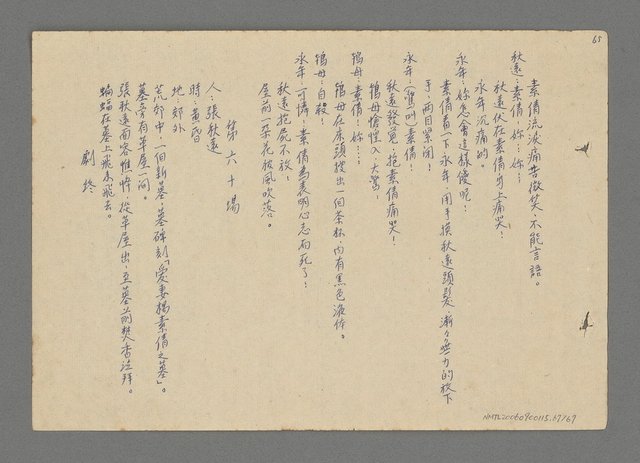 65
素倩流淚痛苦微笑，不能言語。
秋遠：素倩！妳…妳…
秋遠伏在素倩身上痛哭！
永年沉痛的。
永年：妳怎会這樣傻呢！
素倩看一下永年，用手摸秋遠頭髮，漸々無力的放下
手，兩目緊閉！
永年：(驚叫)素倩！
秋遠發覓，抱素倩痛哭！
鴇母愴惶入，大驚！
鴇母：素倩！妳…
鴇母在床頭搜出一個茶杯，內有黑色液体。
鴇母：自殺！
永年：可憐！素倩為表明心志而死了！
秋遠抱屍不放！
屋前一朵花被風吹落。
第六十場
人：張秋遠
時：黃昏
地：郊外
荒郊中，一個新墓，墓碑刻「愛妻楊素倩之墓」。
墓旁有草屋一间。
張秋遠面容憔悴，從草屋出，至墓前焚香注拜。
蝙蝠在墓上飛來飛去。
劇終
NMTL20060900115.67/67